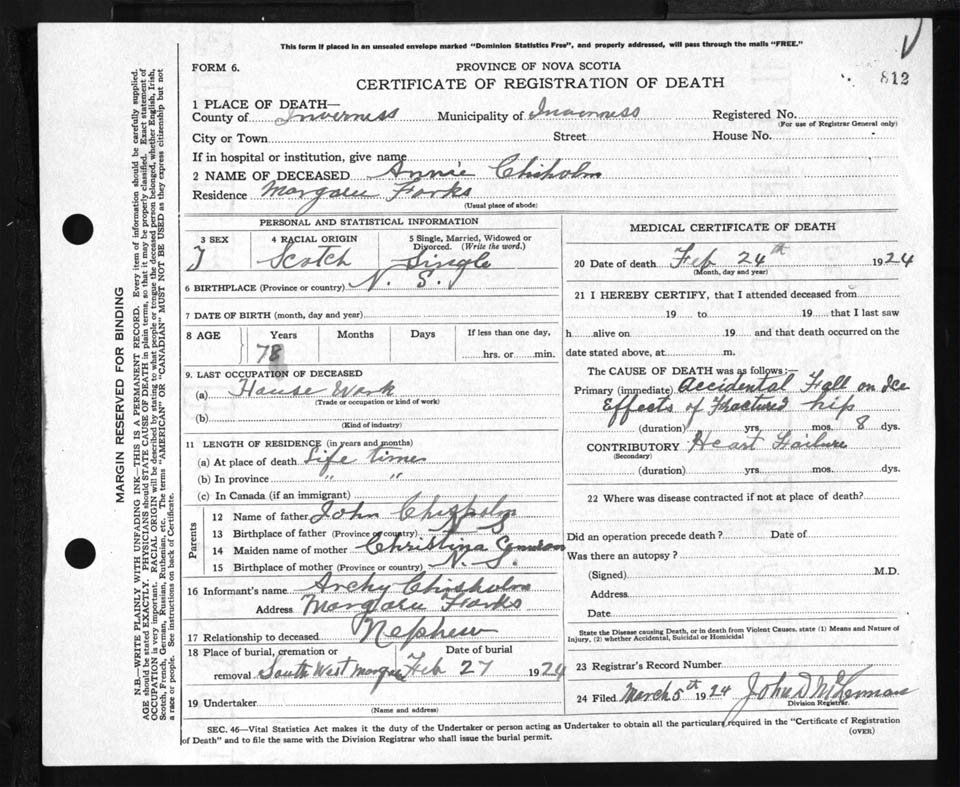 This form if placed in an unsealed envelope marked "Dominion Statistics Free", and properly addressed, will pass through the mails "FREE."
FORM 6.
PROVINCE OF NOVA SCOTIA
CERTIFICATE OF REGISTRATION OF DEATH
812
1 PLACE OF DEATH—
County of Inverness Municipality of Inverness Registered No.
(For use of Registrar General only)
City or Town Street House No.
If in hospital or institution, give name
2 NAME OF DECEASED Annie Chisholm
Residence Margaree Forks
(Usual place of abode)
PERSONAL AND STATISTICAL INFORMATION
3 SEX 4 RACIAL ORIGIN 5 Single, Married, Widowed or Divorced. (Write the word.)
F Scotch Single
6 BIRTHPLACE (Province or country) N. S.
7 DATE OF BIRTH (month, day and year)
8 AGE Years Months Days If less than one day,
78 hrs. or min.
9. LAST OCCUPATION OF DECEASED
(a) House Work
(Trade or occupation or kind of work)
(b)
(Kind of industry)
11 LENGTH OF RESIDENCE (in years and months)
(a) At place of death Life time
(b) In province " "
(c) In Canada (if an immigrant)
Parents
12 Name of father John Chisholm
13 Birthplace of father (Province or country) N S
14 Maiden name of mother Christina Cameron
15 Birthplace of mother (Province or country) N. S.
16 Informant's name Archy Chisholm
Address Margaree Forks
17 Relationship to deceased Nephew
18 Place of burial, cremation or removal Date of burial
South West Margaree Feb 27 1924
19 Undertaker
(Name and address)
MEDICAL CERTIFICATE OF DEATH
20 Date of death Feb 24th 1924
(Month, day and year)
21 I HEREBY CERTIFY, that I attended deceased from
19 to 19 that I last saw
h alive on 19 and that death occurred on the
date stated above, at m.
The CAUSE OF DEATH was as follows:—
Primary (immediate) Accidental Fall on Ice
Effects of Fractured hip
(duration) yrs. mos. 8 dys.
CONTRIBUTORY Heart Failure
(Secondary)
(duration) yrs. mos. dys.
22 Where was disease contracted if not at place of death?
Did an operation precede death? Date of
Was there an autopsy?
(Signed) M.D.
Address
Date
State the Disease causing Death, or in death from Violent Causes, state (1) Means and Nature of Injury, (2) whether Accidental, Suicidal or Homicidal
23 Registrar's Record Number
24 Filed March 5th 1924 John D
Division Registrar.
SEC. 46—Vital Statistics Act makes it the duty of the Undertaker or person acting as Undertaker to obtain all the particulars required in the "Certificate of Registration
of Death" and to file the same with the Division Registrar who shall issue the burial permit.
(OVER)
MARGIN RESERVED FOR BINDING
N.B.—WRITE PLAINLY WITH UNFADING INK—THIS IS A PERMANENT RECORD. Every item of information should be carefully supplied.
AGE should be stated EXACTLY. PHYSICIANS should STATE CAUSE OF DEATH in plain terms, so that it may be properly classified. Exact statement of
OCCUPATION is very important. RACIAL ORIGIN will be described by stating to what people or tongue the deceased person belonged, whether English, Irish,
Scotch, French, German, Russian, Ruthenian, etc. The terms "AMERICAN" OR "CANADIAN" MUST NOT BE USED as they express citizenship but not
a race or people. See instructions on back of Certificate.